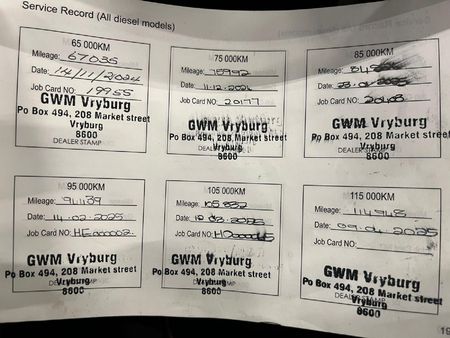 Service Record (All diesel models)
65 000KM
Mileage: 67035
Date: 14/11/2024
Job Card NO: 19955
GWM Vryburg
Po Box 494, 208 Market street
Vryburg
8600
DEALER STAMP
75 000KM
Mileage: 75992
Date: 11.12.2024
Job Card NO: 20177
GWM Vryburg
Po Box 494, 208 Market street
Vryburg
8600
85 000KM
Mileage:
Date:
Job Card NO:
GWM Vryburg
Po Box 494, 208 Market street
Vryburg
DEALER STAMP
8600
95 000KM
Mileage: 91139
Date: 14-02-2025
Job Card NO: HE000002
GWM Vryburg
Po Box 494, 208 Market street
Vryburg
8600
105 000KM
Mileage: 105 882
Date: 2025
Job Card NO:
GWM Vryburg
Po Box 494, 208 Market street
Vryburg
8600
115 000KM
Mileage: 114948
Date: 09.04.2025
Job Card NO:
GWM Vryburg
Po Box 494, 208 Market street
Vryburg
8600
19